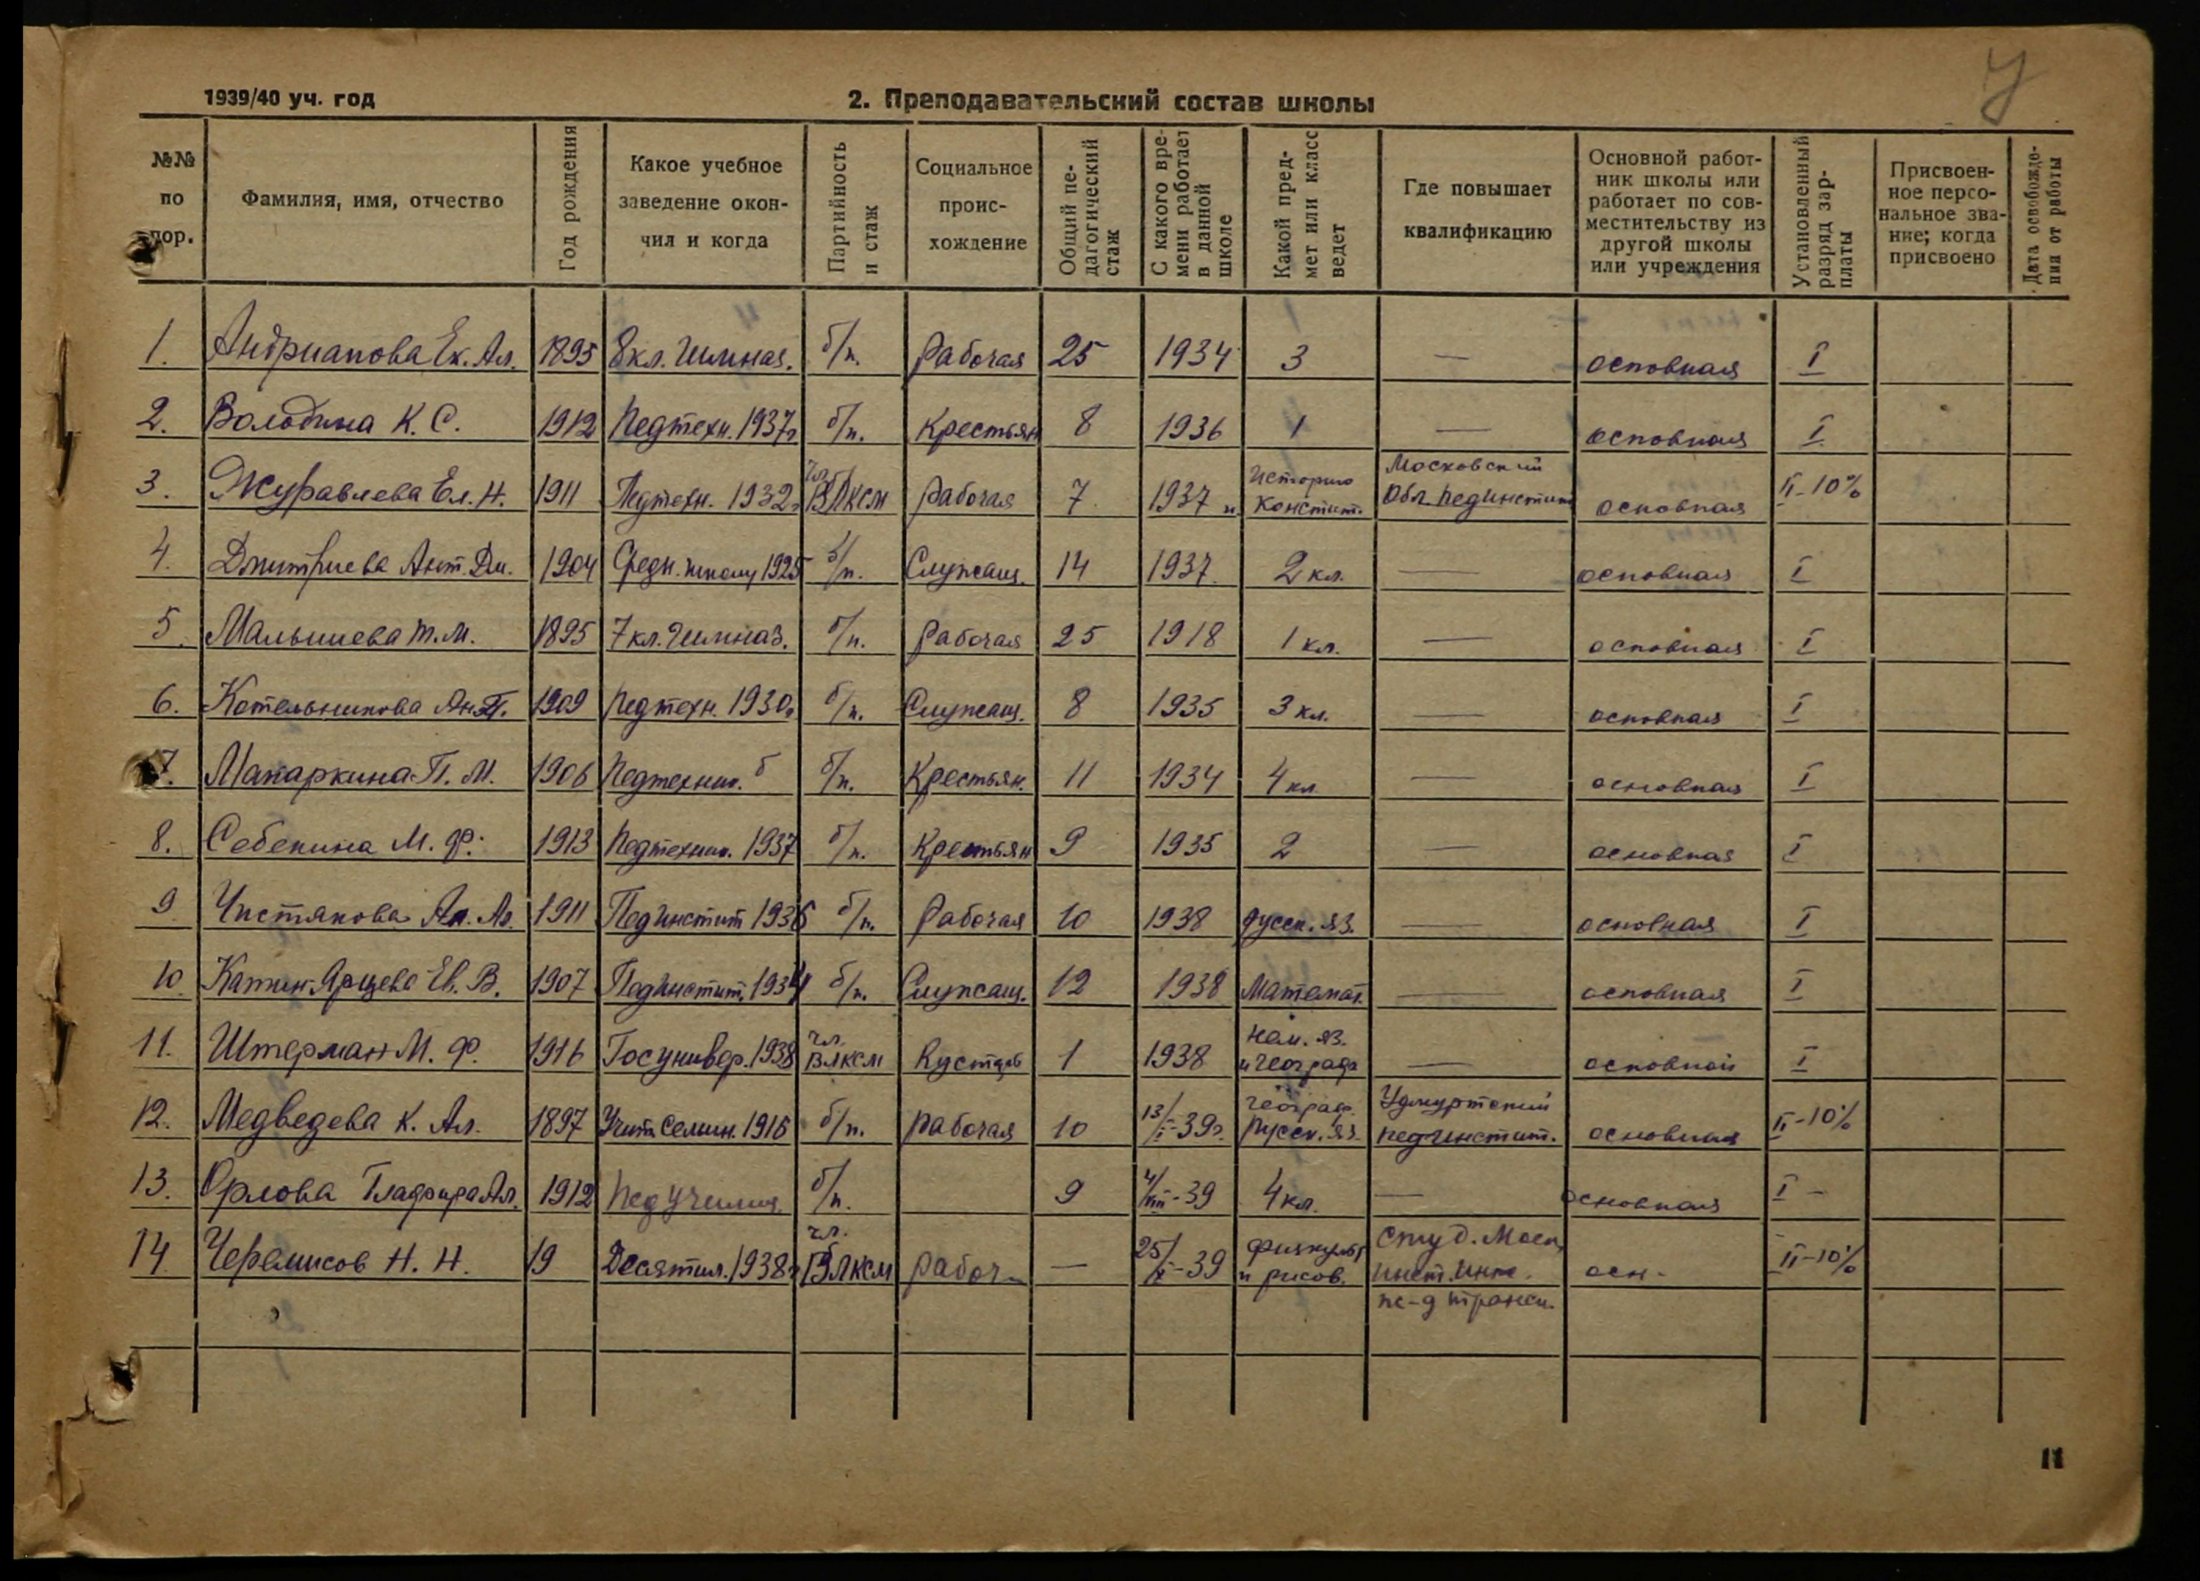 У
1939/40 уч. год
2. Преподавательский состав школы
№№ по пор.
Фамилия, имя, отчество
Год рождения
Какое учебное заведение окон-чил и когда
Партийность и стаж
Социальное проис-хождение
Общий пе-дагогический стаж
С какого вре-мени работает в данной школе
Какой пред-мет или класс ведет
Где повышает квалификацию
Основной работ-ник школы или работает по сов-местительству из другой школы или учреждения
Установленный разряд зар-платы
Присвоен-ное персо-нальное зва-ние; когда присвоено
Дата освобожде-ния от работы
1. Андрианова Ек. Ал. 1895 8 кл. Гимназ. б/п. Рабочая 25 1934 3 — основная I
2. Володина К. С. 1912 Педтехн. 1937г б/п. Крестьян 8 1936 1 — основная I
3. Журавлева Ел. Н. 1911 Педтехн. 1932г чл. ВЛКСМ Рабочая 7. 1937 историю и Констит. Московский Обл. пединститут основная II-10%
4. Дмитриева Ант. Дм. 1904 Средн. школу 1925 б/п. Служащ. 14 1937. 2 кл. — основная I
5. Малышева Т. М. 1895 7 кл. Гимназ. б/п. Рабочая 25 1918 1 кл. — основная I
6. Котельникова Ан. П. 1909 Педтехн. 1930г б/п. Служащ. 8 1935 3 кл. — основная I
7. Макаркина П. М. 1906 Педтехник. б б/п. Крестьян. 11 1934 4 кл — основная I
8. Себекина М. Ф. 1913 Педтехник. 1937 б/п. Крестьян 9 1935 2 — основная I
9 Чистякова Ал. Ал. 1911 Пединститут 1936 б/п. Рабочая 10 1938 русск. яз. — основная I
10 Катин-Ярцева Ев. В. 1907 Пединстит. 1934 б/п. Служащ. 12 1938 Математ. — основная I
11. Штерман М. Ф. 1916 Госунивер. 1938 чл. ВЛКСМ Кустарь 1 1938 нем. яз. и географ — основной I
12. Медведева К. Ал. 1897 Учит. семин. 1916 б/п. рабочая 10 13/I-39г. географ. Русск. яз. Удмуртский пединстит. основная II-10%
13. Орлова Глафира Ал. 1912 Педучилищ. б/п. 9 4/VIII-39 4 кл. — основная I –
14. Черемисов Н. Н. 19 Десятил. 1938г чл. ВЛКСМ рабоч. — 25/X-39 физкульт и рисов. студ. Моск. инст. инж. ж-д трансп. осн. II-10%
11